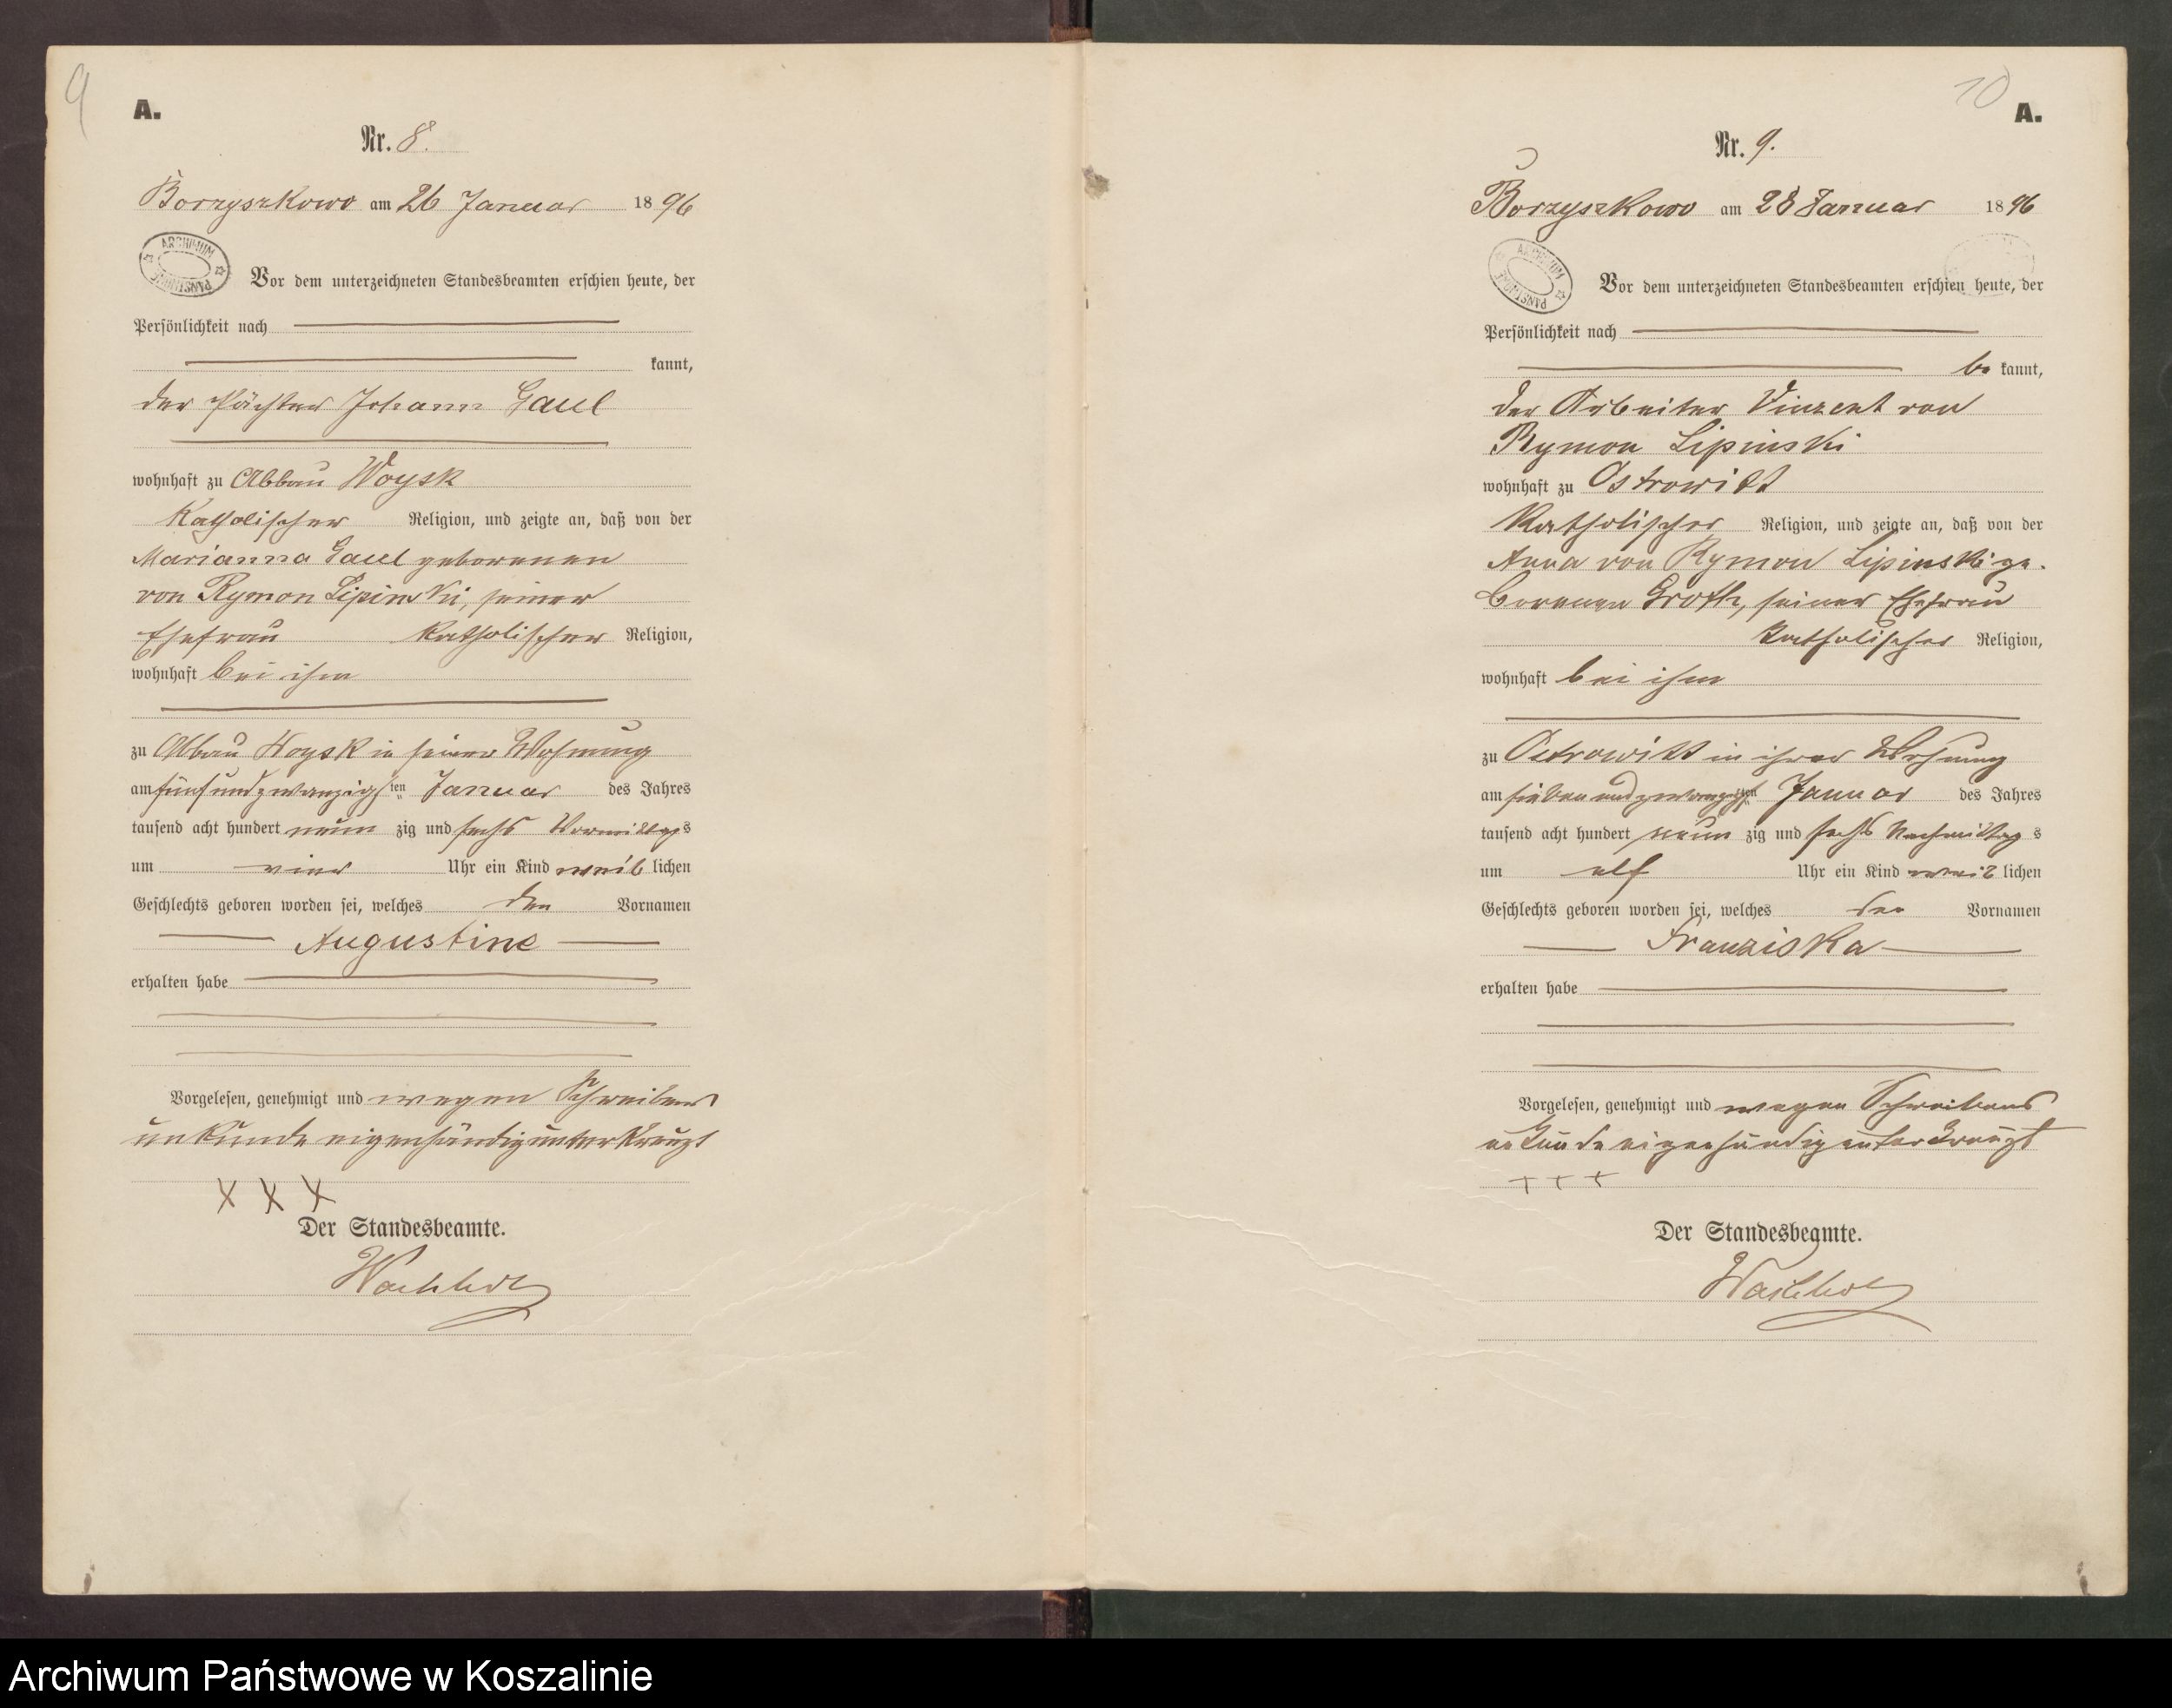 9
A.
Nr. 8.
Borzyszkowo am 26 Januar 1896
ARCHIWUM PAŃSTWOWE
Vor dem unterzeichneten Standesbeamten erschien heute, der
Persönlichkeit nach
kannt,
der Pächter Johann Gaul
wohnhaft zu Abbau Woysk
Katholischer Religion, und zeigte an, daß von der
Marianna Gaul geborenen
von Rymon Lipinski, seiner
Ehefrau katholischer Religion,
wohnhaft bei ihm
zu Abbau Woysk in seiner Wohnung
am fünfundzwanzigsten Januar des Jahres
tausend acht hundert neunzig und sechs Vormittags
um vier Uhr ein Kind weiblichen
Geschlechts geboren worden sei, welches den Vornamen
Augustine
erhalten habe
Vorgelesen, genehmigt und wegen Schreibens
unkunde eigenhändig unterkreuzt
X X X
Der Standesbeamte.
Wachholz
10
A.
Nr. 9.
Borzyszkowo am 28 Januar 1896
ARCHIWUM PAŃSTWOWE
Vor dem unterzeichneten Standesbeamten erschien heute, der
Persönlichkeit nach
bekannt,
der Arbeiter Vinzent von
Rymon Lipinski
wohnhaft zu Ostrowitt
Katholischer Religion, und zeigte an, daß von der
Anna von Rymon Lipinski ge-
borenen Groth, seiner Ehefrau
katholischer Religion,
wohnhaft bei ihm
zu Ostrowitt in ihrer Wohnung
am siebenundzwanzigsten Januar des Jahres
tausend acht hundert neunzig und sechs Nachmittags
um elf Uhr ein Kind weiblichen
Geschlechts geboren worden sei, welches den Vornamen
Franziska
erhalten habe
Vorgelesen, genehmigt und wegen Schreibens
unkunde eigenhändig unterkreuzt
+ + +
Der Standesbeamte.
Wachholz
Archiwum Państwowe w Koszalinie